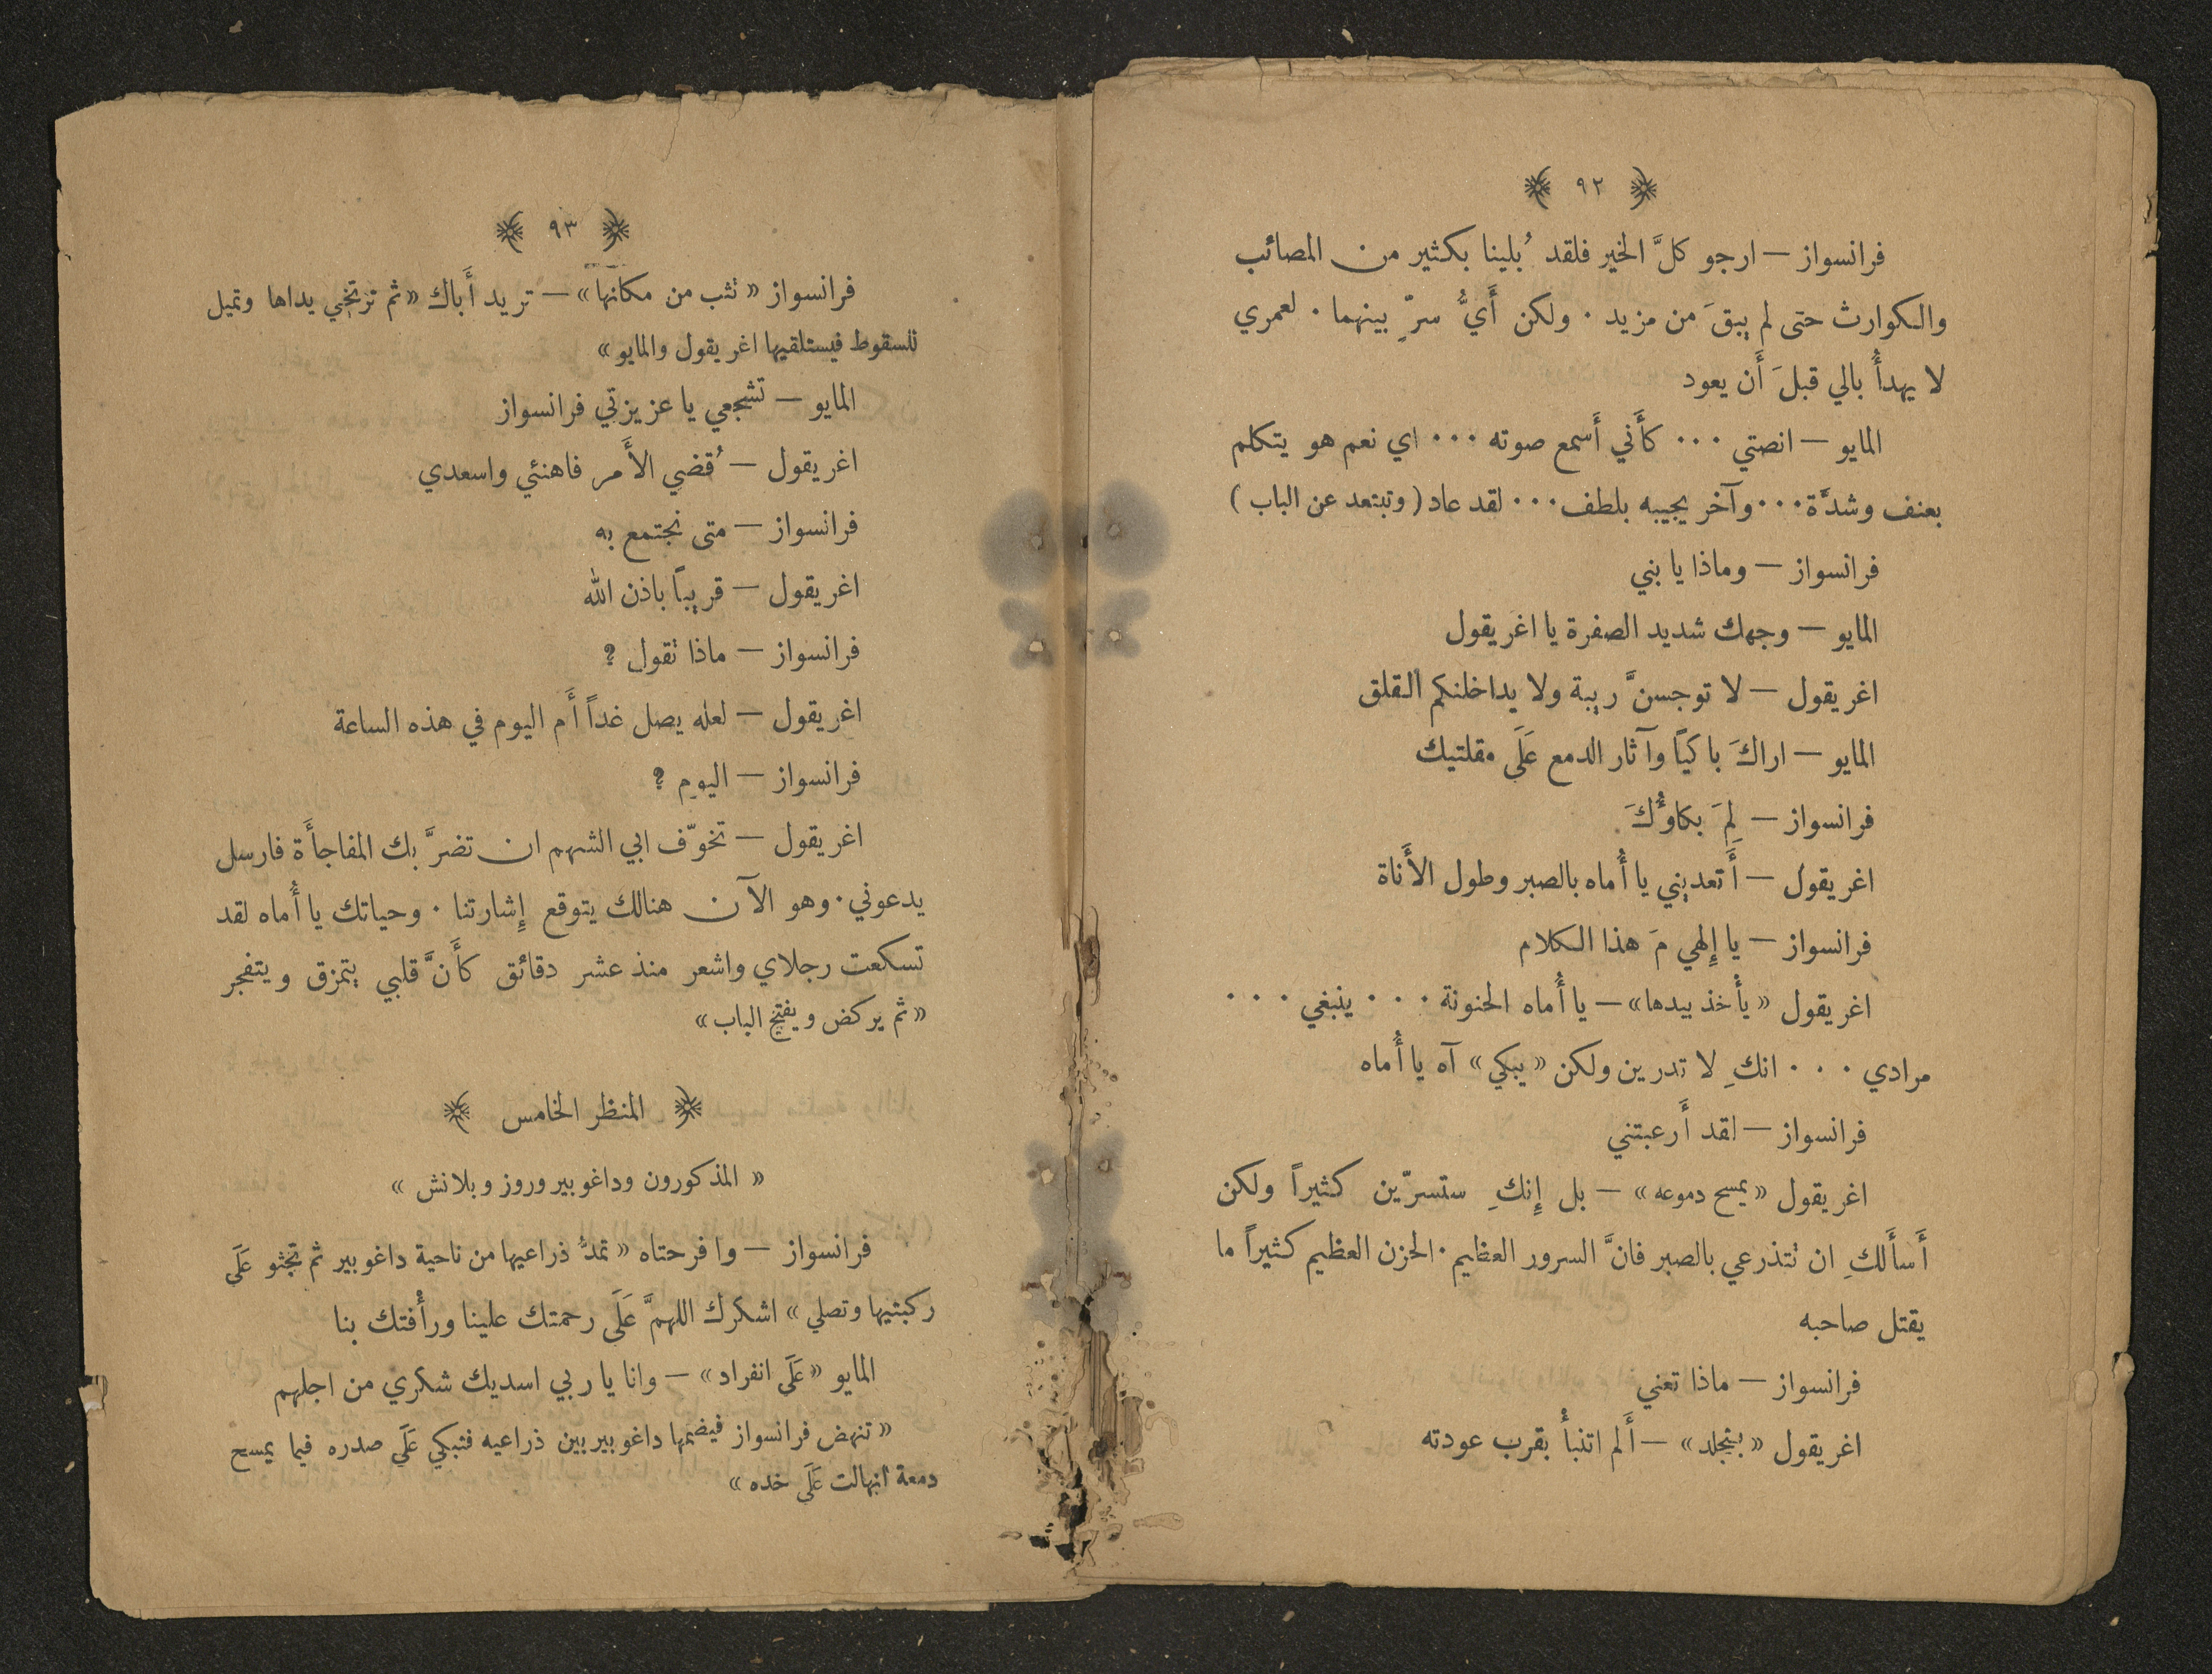 ٩٢
فرانسواز — ارجو كلَّ الخير فلقد بُلينا بكثير من المصائب
والكوارث حتى لم يبقَ من مزيد · ولكن أَيُّ سرّ بينهما · لعمري
لا يهدأُ بالي قبلَ أَن يعود
المايو — انصتي ··· كأَني أَسمع صوته ··· اي نعم هو يتكلم
بعنف وشدَّة ··· وآخر يجيبه بلطف ··· لقد عاد ( وتبتعد عن الباب )
فرانسواز — وماذا يا بني
المايو — وجهك شديد الصفرة يا اغريقول
اغريقول — لا توجسنَّ ريبة ولا يداخلنكم القلق
المايو — اراكَ باكياً وآثار الدمع عَلَى مقلتيك
فرانسواز — لِمَ بكاوُّكَ
اغريقول — أَتعديني يا أُماه بالصبر وطول الأَناة
فرانسواز — يا إِلهي مَ هذا الكلام
اغريقول «يأخذ بيدها» — يا أُماه الحنونة ··· ينبغي ···
مرادي ··· انكِ لا تدرين ولكن «يبكي» آه يا أُماه
فرانسواز — لقد أَرعبتني
اغريقول «يمسح دموعه» — بل إِنكِ ستسرّين كثيراً ولكن
أَسأَلكِ ان تتذرعي بالصبر فانَّ السرور العظيم · الحزن العظيم كثيراً ما
يقتل صاحبه
فرانسواز — ماذا تعني
اغريقول «بتجلد» — أَلم اتنبأْ بقرب عودته
٩٣
فرانسواز «تثب من مكانها» — تريد أَباك «ثم ترتخي يداها وتميل
للسقوط فيستلقيها اغريقول والمايو»
المايو — تشجعي يا عزيزتي فرانسواز
اغريقول — قُضي الأَمر فاهنئي واسعدي
فرانسواز — متى نجتمع به
اغريقول — قريباً باذن الله
فرانسواز — ماذا تقول ؟
اغريقول — لعله يصل غداً أَم اليوم في هذه الساعة
فرانسواز — اليوم ؟
اغريقول — تخوّف ابي الشهم ان تضرَّ بك المفاجأَة فارسل
يدعوني · وهو الآن هنالك يتوقع إِشارتنا · وحياتك يا أُماه لقد
تسكعت رجلاي واشعر منذ عشر دقائق كأَنَّ قلبي يتمزق ويتفجر
«ثم يركض ويفتح الباب»
المنظر الخامس
« المذكورون وداغوبير وروز وبلانش »
فرانسواز — وا فرحتاه «تمدُّ ذراعيها من ناحية داغوبير ثم تجثو عَلَى
ركبتيها وتصلي» اشكرك اللهمَّ عَلَى رحمتك علينا ورأْفتك بنا
المايو «عَلَى انفراد» — وانا يا ربي اسديك شكري من اجلهم
«تنهض فرانسواز فيضمها داغوبير بين ذراعيه فتبكي عَلَى صدره فيما يمسح
دمعة انهالت عَلَى خده»